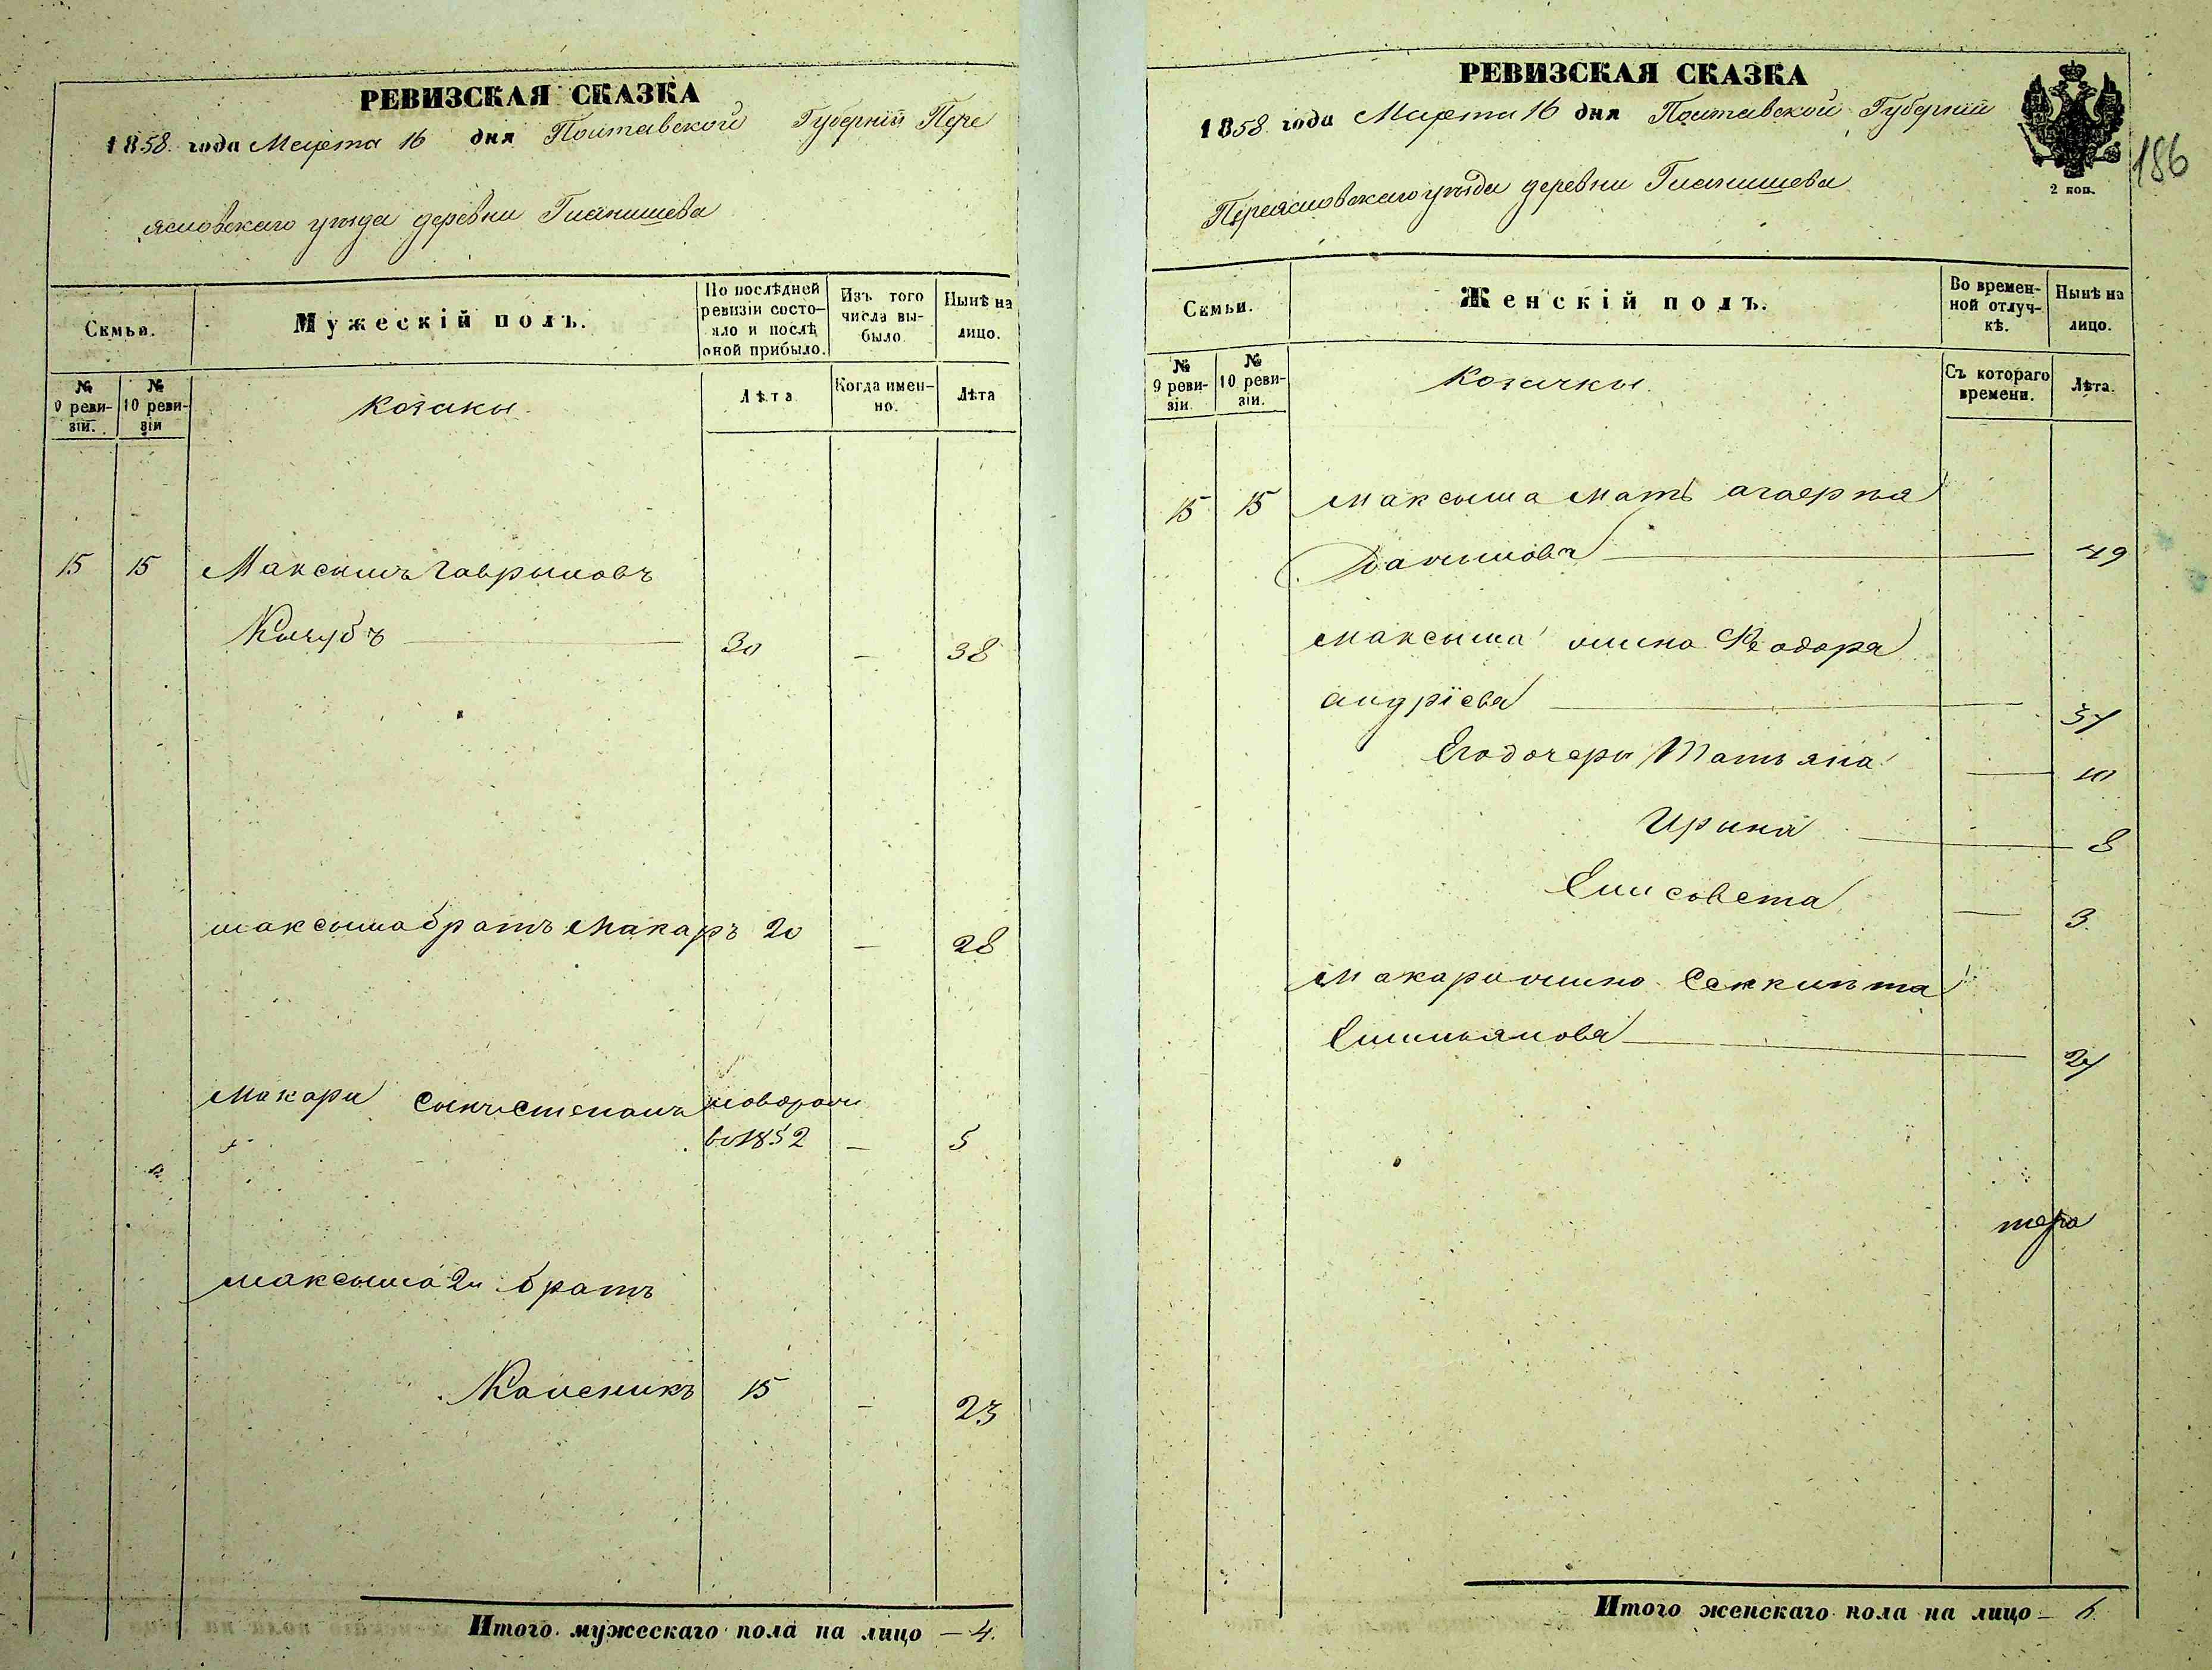 РЕВИЗСКАЯ СКАЗКА
1858 года Марта 16 дня Полтавской Губерніи Пере
яславскаго уѣзда деревни
Семьи.
Мужескій полъ.
По послѣдней ревизіи состояло и послѣ оной прибыло.
Изъ того числа выбыло.
Нынѣ на лицо.
№ 9 ревизіи.
№ 10 ревизіи
козаки
Лѣта
Когда именно.
Лѣта
15 15 Максымъ Гаврыловъ
Кычубъ 30 — 38
максыма братъ Макаръ 20 — 28
Макара сынъ Степанъ новорож
во 1852 — 5
максыма 2й братъ
Каленикъ 15 — 23
Итого мужескаго пола на лицо — 4.
РЕВИЗСКАЯ СКАЗКА
1858 года Марта 16 дня Полтавской Губерніи
Переяславскаго уѣзда деревни
2 коп.
186
Семьи.
Женскій полъ.
Во временной отлучкѣ.
Нынѣ на лицо.
№ 9 ревизіи.
№ 10 ревизіи.
козачкы
Съ котораго времени.
Лѣта.
15 15 максыма мать
Данылова 49
максыма жена Феодора
андріева 37
Его дочеры Татьяна — 10
Ирина 8
Елисовета — 3
Макара жена
Емильянова 27
Итого женскаго пола на лицо — 6